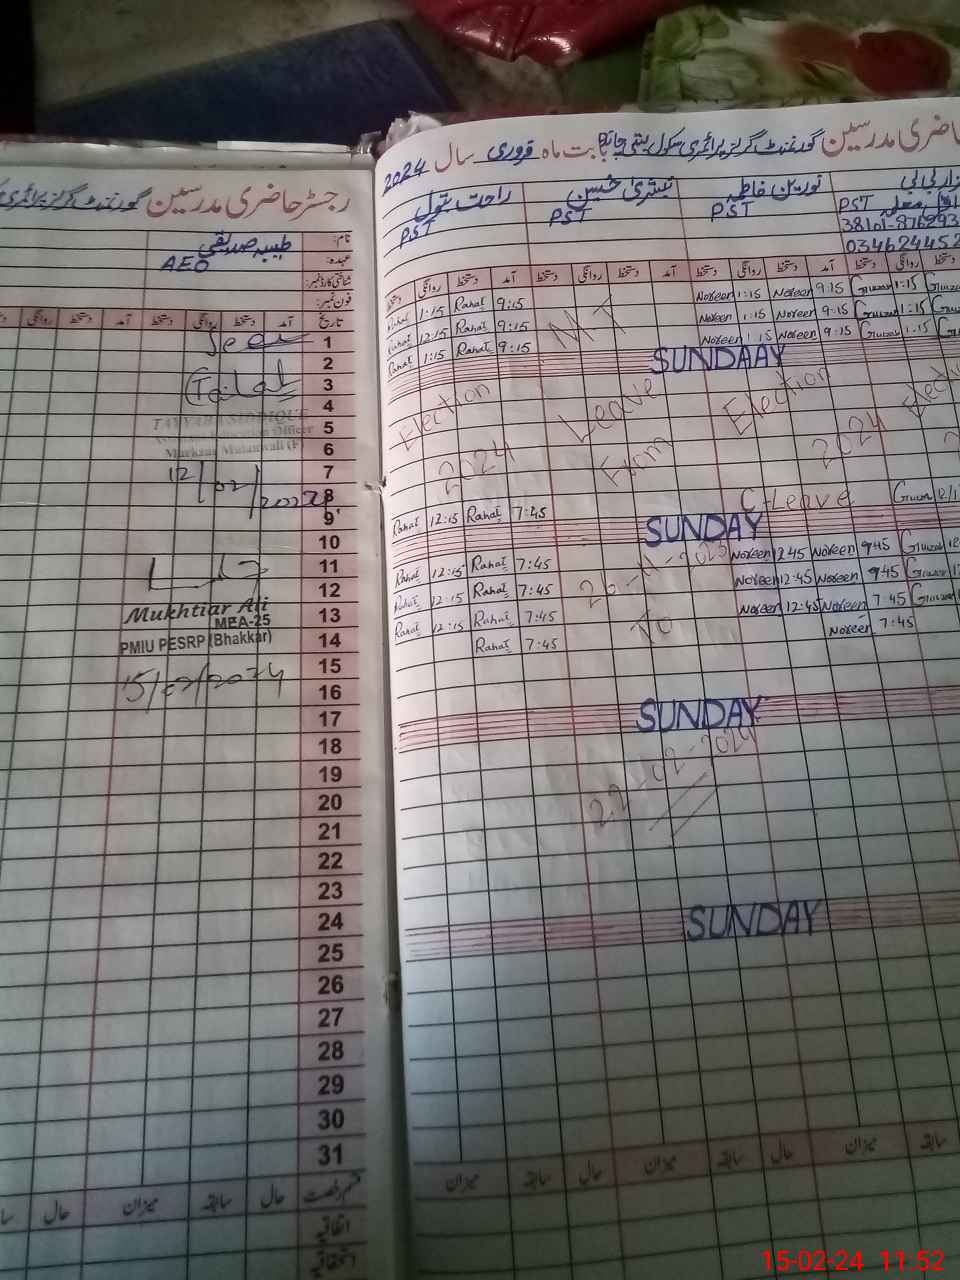 رجسٹر حاضری مدرسین گورنمنٹ گرلز پرائمری
نام: طیبہ صدیقی
عہدہ: AEO
شناختی کارڈ نمبر:
فون نمبر:
روانگی دستخط آمد دستخط روانگی دستخط آمد تاریخ
1
2
3
4
5
6
7
8
9
10
11
12
13
14
15
16
17
18
19
20
21
22
23
24
25
26
27
28
29
30
31
Seen
TAYYABA SIDDIQUE
12/02/2024
Mukhtiar Ali
MEA-25
PMIU PESRP (Bhakkar)
15/02/2024
حال میزان سابقہ حال قسم رخصت
اتفاقیہ
استحقاقیہ
حاضری مدرسین گورنمنٹ گرلز پرائمری سکول بابت ماہ فروری سال 2024
نورین فاطمہ بشریٰ حسین راحت بتول
PST PST PST PST
034624452
دستخط روانگی دستخط آمد دستخط روانگی دستخط آمد دستخط روانگی دستخط آمد دستخط روانگی
Rahat 1:15 Rahat 9:15 Noreen 1:15 Noreen 9:15 Gulzar 1:15
Rahat 12:15 Rahat 9:15 M T Noreen 1:15 Noreen 9:15 Gulzar 1:15
Rahat 1:15 Rahat 9:15 Noreen 1:15 Noreen 9:15 Gulzar 1:15
SUNDAAY
Election Leave Election
2024 From 2024
C-Leave
Rahat 12:15 Rahat 7:45
SUNDAY
Rahat 12:15 Rahat 7:45 26-11-2023 Noreen 12:45 Noreen 9:45
Rahat 12:15 Rahat 7:45 Noreen 12:45 Noreen 9:45
Rahat 12:15 Rahat 7:45 To Noreen 12:45 Noreen 7:45
Rahat 7:45 Noreen 7:45
SUNDAY
22-02-2024
SUNDAY
میزان سابقہ حال میزان سابقہ حال میزان سابقہ
15-02-24 11:52